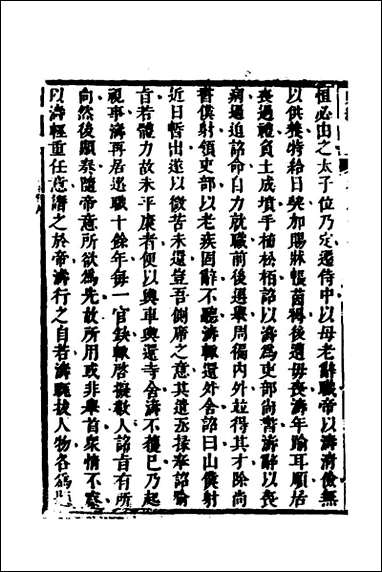 恒必由之太子位乃定遷侍中以母老辭職帝以濤清儉無
以供養特給日契加賜牀帳茵褥後遭母喪濤年踰耳順居
喪過禮負土成墳手植松柏詔以濤爲吏部尚書濤辭以喪
病逼迫詔命自力就職前後選舉周徧内外並得其才除尚
書僕射領吏部以老疾固辭不聽濤輒還外舍詔曰山僕射
近日暫出遂以微苦未還豈吾側席之意其遣丞掾奉詔喻
旨若體力故未平康者便以輿車輿還寺舍濤不獲已乃起
視事濤再居選職十餘年每一官缺輒啓擬數人詔旨有所
向然後顯奏隨帝意所欲爲先故所用或非舉首衆情不察
以濤輕重任意譖之於帝濤行之自若濤甄拔人物各爲題